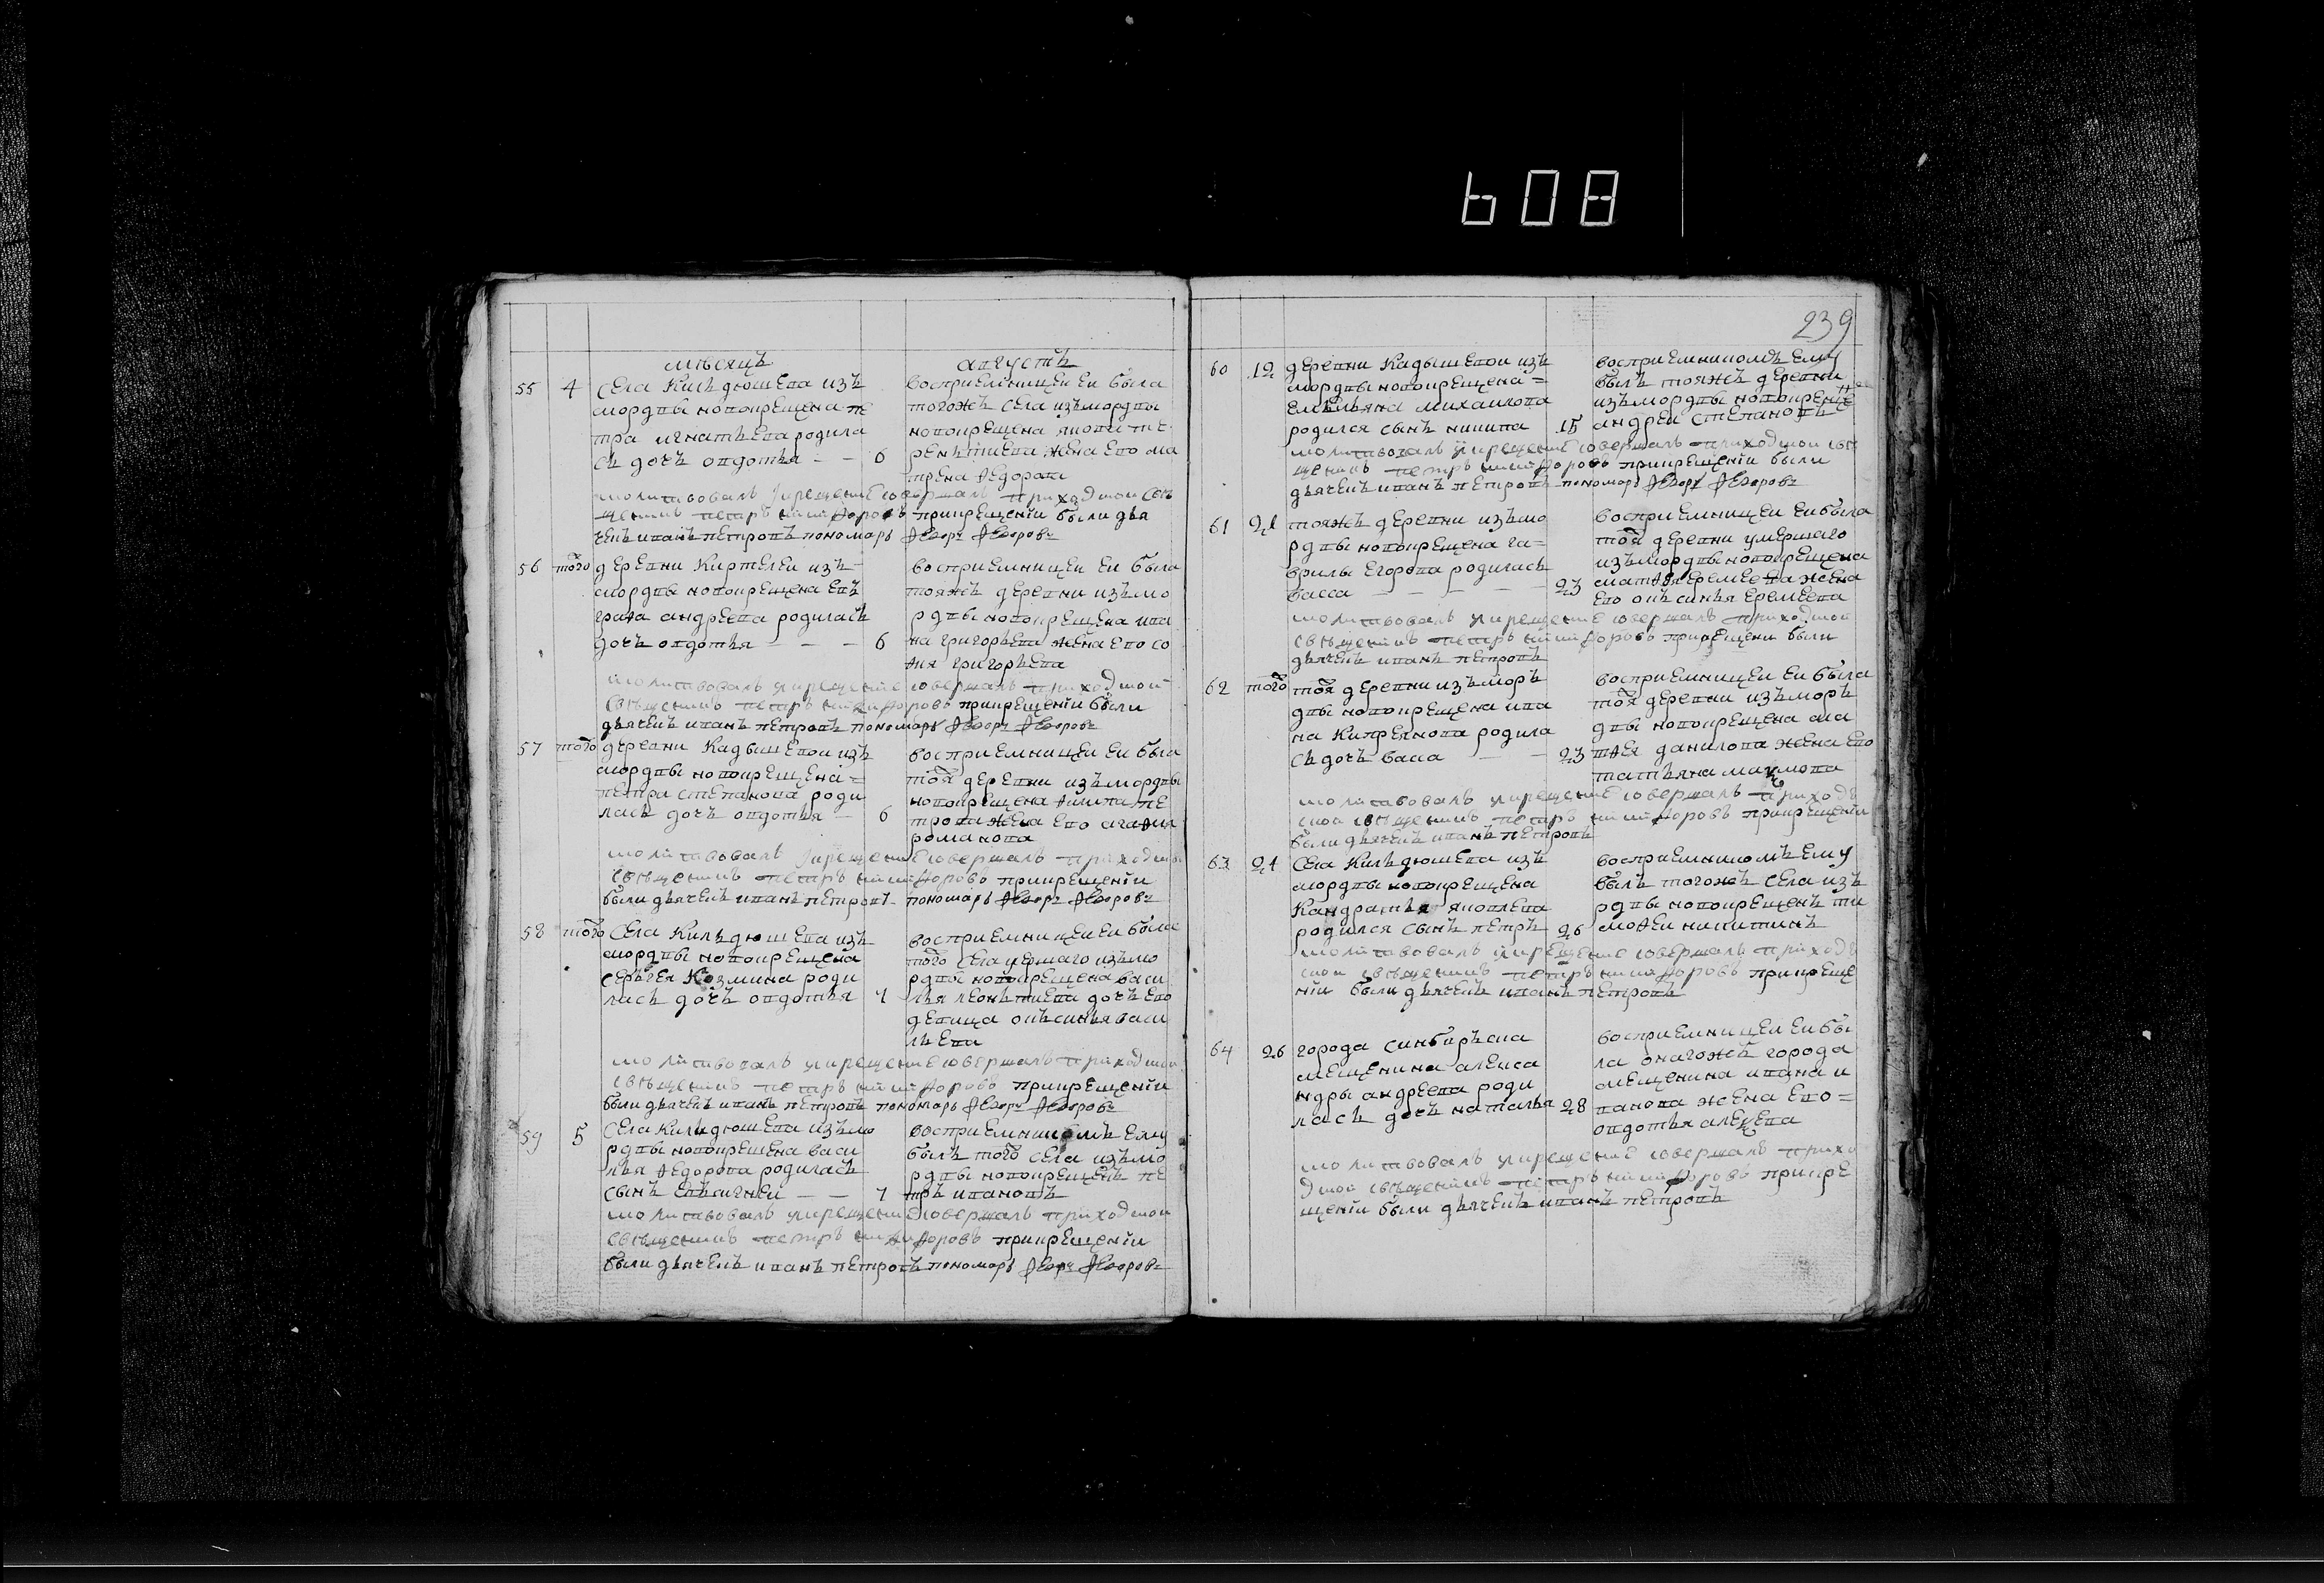 608
239
мѣсяцъ августъ
55 4 села Кильдюшева изъ
мордвы новокрещена пе
тра игнатьева родила
сь дочь овдотья — — 6
восприемницеи еи была
тогожъ села изъ мордвы
новокрещена якова те
рентиева жена его ма
трена ѳедорова
молитвовалъ икрещение совершалъ приходскои свѣ
щенникъ петръ никифоровъ прикрещенїи были дья
чекъ иванъ петровъ пономарь ѳедоръ ѳедоровъ
56 того деревни Киртелеи изъ
мордвы новокрещена евъ
граѳа андреева родилась
дочь овдотья — — — 6
восприемницеи еи была
тояжъ деревни изъ мо
рдвы новокрещена ива
на григорьева жена его со
ѳия григорьева
молитвовалъ икрещение совершалъ приходскои
свѣщенникъ петръ никифоровъ прикрещенїи были
дьячекъ иванъ петровъ пономарь ѳедоръ ѳедоровъ
57 того деревни Кадышевои изъ
мордвы новокрещена =
петра степанова роди
лась дочь овдотья — 6
восприемницеи еи была
тоя деревни изъ мордвы
новокрещена ѳилипа пе
трова жена его агаѳия
романова
молитвовалъ икрещение совершалъ приходскои
свѣщенникъ петръ никифоровъ прикрещенїи
были дьячекъ иванъ петровъ пономарь ѳедоръ ѳедоровъ
58 того села Кильдюшева изъ
мордвы новокрещена
сергея Козмина роди
лась дочь овдотья 7
восприемницеи еи была
того села умершаго изъ мо
рдвы новокрещена васи
лья леонтиева дочь его
девица оксинья васи
льева
молитвовалъ икрещение совершалъ приходскои
свѣщенникъ петръ никифоровъ прикрещенїи
были дьячекъ иванъ петровъ пономарь ѳедоръ ѳедоровъ
59 5 села Кильдюшева изъ мо
рдвы новокрещена васи
лья ѳедорова родилась
сынъ евъсигнеи — — 7
восприемникомъ ему
былъ того села изъ мо
рдвы новокрещенъ пе
тръ ивановъ
молитвовалъ икрещение совершалъ приходскои
свѣщенникъ петръ никифоровъ прикрещенїи
были дьячекъ иванъ петровъ пономарь ѳедоръ ѳедоровъ
60 12 деревни Кадышевои изъ
мордвы новокрещена =
емельяна михаилова
родился сынъ никита 15
восприемникомъ ему
былъ тояжъ деревни
изъ мордвы новокреще
андреи степановъ
молитвовалъ икрещение совершалъ приходскои свѣ
щенникъ петръ никифоровъ прикрещенїи были
дьячекъ иванъ петровъ пономарь ѳедоръ ѳедоровъ
61 21 тояжъ деревни изъ мо
рдвы новокрещена га =
врилы егорова родилась
васса — — — — — 23
восприемницеи еи была
тоя деревни умершаго
изъ мордвы новокрещена
матѳея еремеева жена
его оксинья еремеева
молитвовалъ икрещение совершалъ приходскои
свѣщенникъ петръ никифоровъ прикрещени были
дьячекъ иванъ петровъ
62 того тоя деревни изъ моръ
двы новокрещена ива
на Кипреянова родила
сь дочь васа — — 23
восприемницеи еи была
тоя деревни изъ моръ
двы новокрещена ма
тѳея данилова жена его
татьяна
молитвовалъ икрещение совершалъ приходъ
скои свѣщенникъ петръ никифоровъ прикрещенїи
были дьячекъ иванъ петровъ
63 24 села Кильдюшева изъ
мордвы новокрещена
Кандратья яковлева
родился сынъ петръ 26
восприемникомъ ему
былъ тогожъ села изъ
рдвы новокрещенъ ти
моѳеи никитинъ
молитвовалъ икрещение совершалъ приходъ
скои свѣщенникъ петръ никифоровъ прикреще
нїи были дьячекъ иванъ петровъ
64 26 города синбирьска
мещенина алекса
ндры андреева роди
лась дочь наталья 28
восприемницеи еи бы
ла онагожъ города
мещенина ивана и
ванова жена его =
овдотья алекъева
молитвовалъ икрещение совершалъ прихо
дскои свѣщенникъ петръ никифоровъ прикре
щенїи были дьячекъ иванъ петровъ